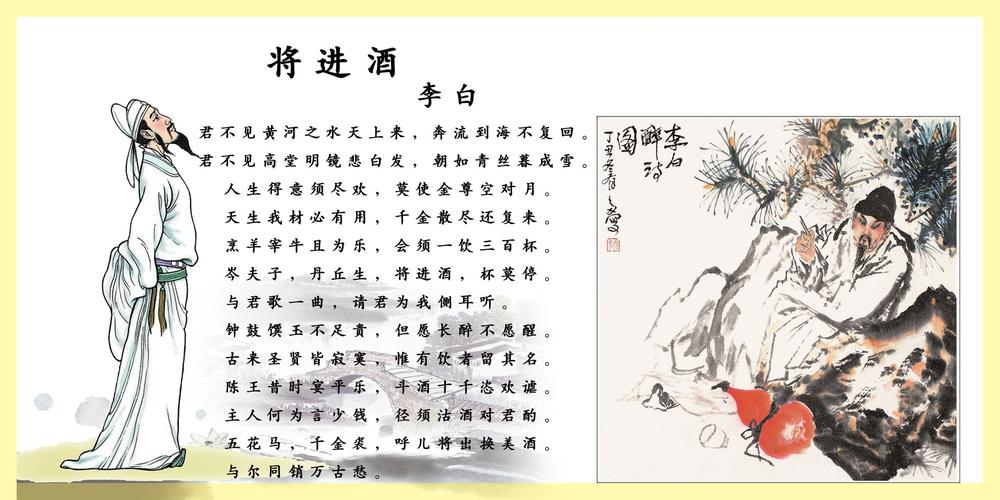 将进酒
李白
君不见黄河之水天上来，奔流到海不复回。
君不见高堂明镜悲白发，朝如青丝暮成雪。
人生得意须尽欢，莫使金尊空对月。
天生我材必有用，千金散尽还复来。
烹羊宰牛且为乐，会须一饮三百杯。
岑夫子，丹丘生，将进酒，杯莫停。
与君歌一曲，请君为我侧耳听。
钟鼓馔玉不足贵，但愿长醉不愿醒。
古来圣贤皆寂寞，惟有饮者留其名。
陈王昔时宴平乐，斗酒十千恣欢谑。
主人何为言少钱，径须沽酒对君酌。
五花马，千金裘，呼儿将出换美酒。
与尔同销万古愁。
李白
醉诗
圖